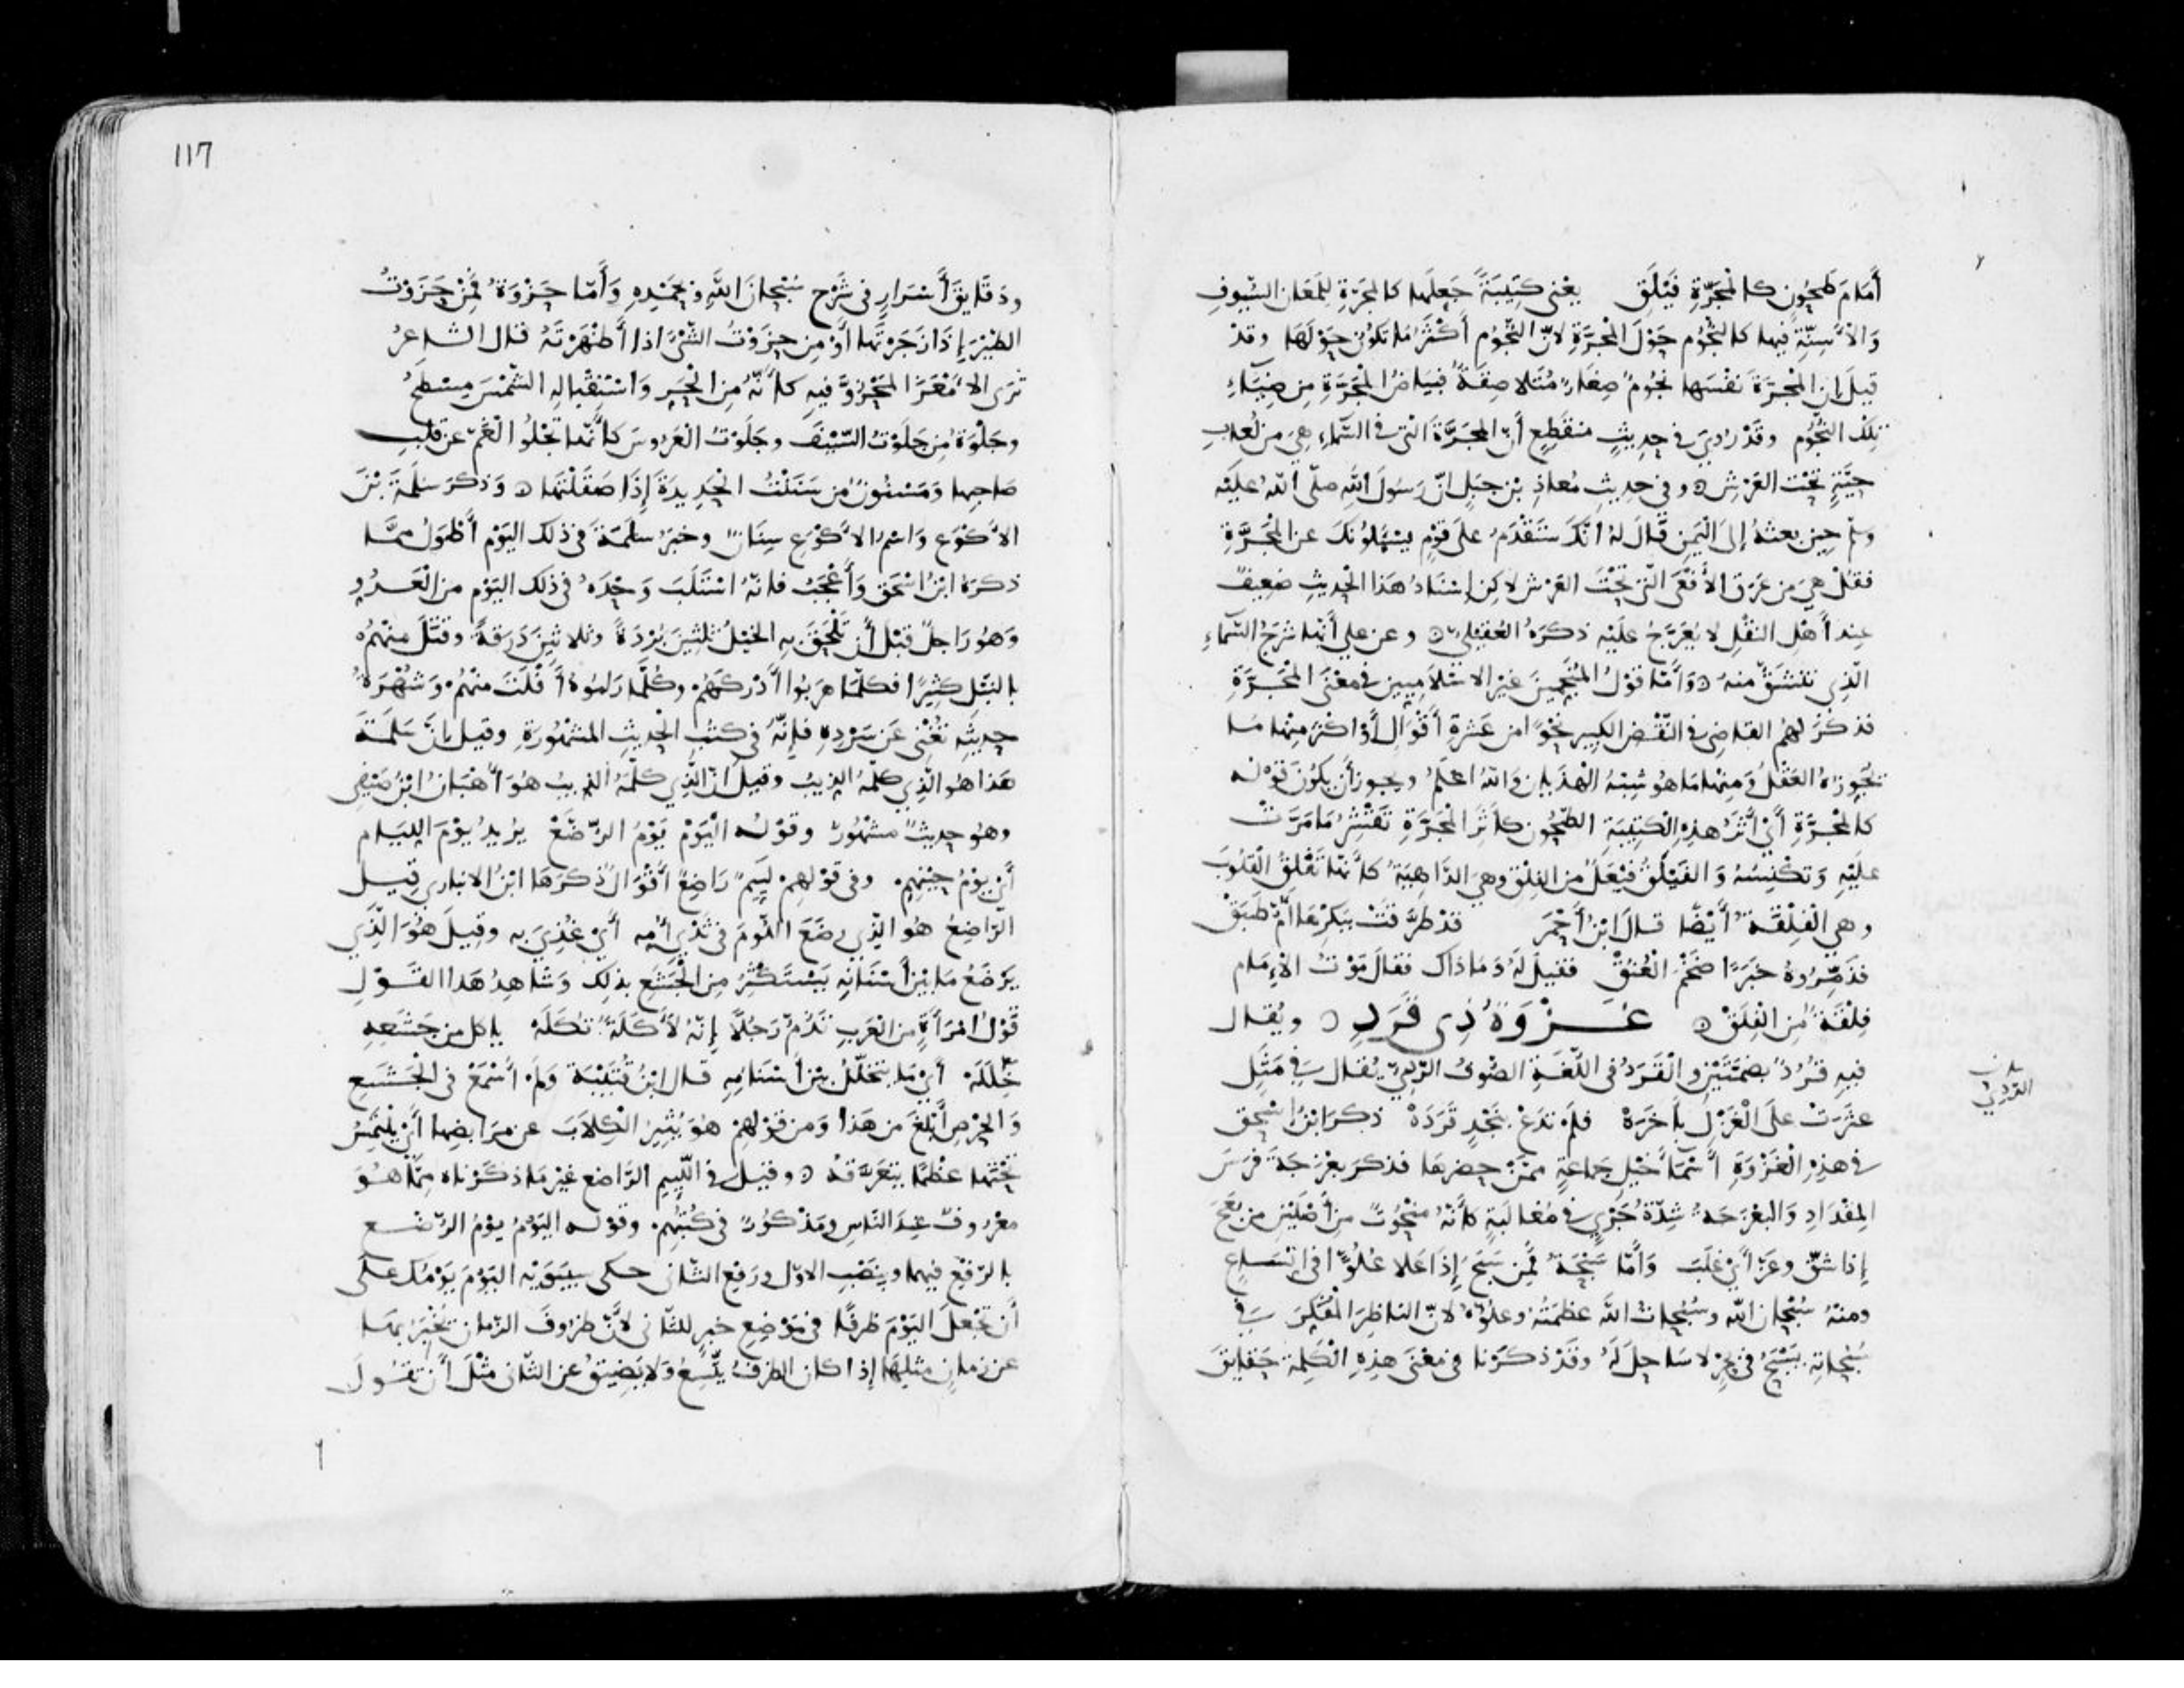 أَمَامَ طَحُونٍ كالمَجَرَّةِ فَيْلَقِ يعْنى كَتِيبَةً جَعلَها كالمَجَرّةِ لِلَمَعَانِ السُّيوفِ
وَالأَسِنّةِ فيها كالنُّجُومِ حَوْلَ المَجَرَّةِ لانّ النُّجُومَ أَكْثَرُ مَا تكُونُ حَوْلَهَا وقدْ
قيلَ إن المْجَرّةَ نفْسَها نجُومٌ صِغَارٌ مُتَلاصِقَةٌ فبَيَاضُ المَجَرَّةِ مِن ضِيَاءِ
تلْكَ النُّجُومِ وقَدْ رُوِيَ في حِديثٍ منقَطِعٍ أَنّ المجَرَّةَ التى فى السَّماءِ هِيَ مِن لُعابِ
حيَّةٍ تَحْت العَرْشِ وفي حديثِ مُعاذِ بْنِ جبَلٍ انّ رَسُولَ اللهِ صلّى اللهُ عليْه
وسلم حِين بعثهُ إلى اليَمنِ قَالَ لهُ انّكَ سَتَقْدَمُ علَى قوْمٍ يسْئَلُونكَ عن المْجَرَّةِ
فقُلْ هيَ من عَرَقِ الأَفْعَى الّتى تحْتَ العَرْش لاكِن إسْنادُ هَذا الْحَديثِ ضعِيفٌ
عِند أَهْلِ النقْلِ لا يُعَرَّجُ علَيْه ذكرَهُ العُقيْلي وعن علي أنَّها شَرَجُ السّماءِ
الّذِى تنْشَقّ منهُ وَأمّا قوْلُ المُنَجّمينَ غيْر الاسْلاَمِيينَ في معْنَى المْجَرَّةِ
فذكَرَ لهُم القاضِي فى النّقْضِ الكبِير نَحْوًا من عَشرَةِ أَقْوَال أَوْ اكْثر مِنْها مَا
يُجَوّزهُ العَقْلُ وَمِنْها مَا هُو شِبْهُ الْهَذَيان وَاللهُ اعلمُ ويجوز أن يكُونَ قوْله
كالمْجَرَّةِ أيْ أَثَرُ هذِهِ الكتِيبَةِ الطّحُون كأَثَرِ المْجَرَّةِ تَقْشِرُ مَا مَرَّتْ
علَيْهِ وَتكْنِسُهُ وَالفَيْلَقُ فَيْعَلٌ من الفِلْقِ وهي الدَّاهِيَةُ كأَنّها تَفْلِقُ القُلوبَ
وهي الْفِلْقَةُ أَيْضًا قالَ ابْنُ أَحْمَرَ قدْ طَرَّقَتْ بِبِكْرِهَا أمّ طَبَقْ
فذَمَّرُوهُ خبَرًا ضَخْمَ الْعُنُقْ فقيلَ لَهُ وَمَا ذاك فقالَ مَوْتُ الإِمَام
فِلْقَةٌ مِن الْفِلَقْ غَـزْوَةُ ذِى قَرَدِ ويُقال
فيهِ قُرُدٌ بضمّتَيْنِ والْقَرَدُ في اللّغَةِ الصُّوفُ الرّدِيّ يُقال في مَثَلٍ
عثَرَتْ علَى الْغَزْلِ بأَخَرَهْ فلمْ تدَعْ بنَجْدٍ قَرَدَهْ ذكرَ ابْنُ إسْحق
في هذِهِ الْغَزْوَةِ أَسْمَاءَ خيْلِ جمَاعةٍ ممَّنْ حضرهَا فذكرَ بعْزَجَةَ فرَسَ
المِقْدَادِ وَالبَعْزَجَةُ شِدّةُ جَرْيٍ في مُغَالَبَةٍ كأَنّهُ منْحُوتٌ من أَصْلَيْنِ من بَعَجَ
إذا شقّ وعَزّ أيْ غلَبَ وَأمّا سَبْحَةُ فمن سَبَحَ إذَا عَلا عُلُوًّا في اتسَاعٍ
ومنْهُ سُبْحان اللهِ وسُبُحات اللَّه عظَمتُهُ وعلُوّهُ لانّ الناظِرَ المْفَكِّرَ في
سُبُحاتِهِ يَسْبَحُ في بحْرٍ لا سَاحِلَ لَهُ وقَدْ ذكَرْنا في معْنَى هذِهِ الْكَلِمة حَقايقَ
بلان
القردي
117
ودقَايقَ أَسْرَارٍ فى شَرْح سُبْحانَ اللهِ وبحَمْدِهِ وَأمّا حَزْوَةُ فَمِنْ حَزَوْتُ
الطيْرَ إذَا زَجَرْتَها أوْ مِن حزَوْتُ الشّيْءَ اذا أَظْهَرْتَهُ قال الشاعرُ
تُرَى الامْعَزَ المَحْزُوَّ فيهِ كأَنّهُ مِن الْحَرِ وَاسْتِقْبالِهِ الشّمْسَ مِسْطَحُ
وجَلْوَةُ مِن جَلَوْتُ السّيْفَ وجَلَوْتُ العَرُوسَ كأَنّها تَجْلُوا الْغَمّ عن قلْبِ
صَاحِبِها وَمَسْنُونٌ من سَنَنْتُ الْحَدِيدَةَ إذَا صَقَلْتَها وَذكرَ سَلَمَةَ بْنَ
الأَكوَعِ وَاسْمُ الأَكْوَعِ سِنَانٌ وخبرُ سلَمَةَ فى ذلك اليَوْم أَطْوَلُ ممَّا
ذكرَهُ ابْنُ اسْحَق وَأَعْجَبُ فإنّهُ اسْتَلَبَ وَحْدَهُ في ذلك اليَوْم من الْعَدُوِّ
وَهُو رَاجلٌ قبْل أَن تَلْحَقَ بهِ الخيْلُ ثلثينَ بُرْدَةً وثلاثينَ دَرَقةً وقتَلَ منْهُم
بالنبْلِ كثِيرًا فكلّمَا هرَبُوا أَدْركَهُم وكُلّما رَامُوهُ أَفْلَتَ منْهُمْ وَشُهْرَةُ
حدِيثِهِ تُغْنى عَن سَرْدِهِ فإنّهُ فى كتُبِ الْحديثِ المَشْهُورَةِ وقيل إنّ سَلمَةَ
هَذا هُو الّذِي كلّمهُ الذيبُ وقيلَ انّ الّذِي كلّمَهُ الذيبُ هُوَ أُهْبَانُ ابْنُ صَيْفِي
وهُو حِديثٌ مشهُورٌ وقوْله الْيَوْمُ يَوْمُ الرّضّعْ يرُيدُ يوْمَ اللِّيَام
أيْ يوْمُ جُبْنِهِم وفى قوْلهم لَيِيمٌ رَاضِعٌ أَقْوَالٌ ذكَرَهَا ابْنُ الانبارى قِيلَ
الرّاضِعُ هُو الّذِى رضَعَ اللّوْمَ في ثَدْيِ أُمِّهِ أَيْ غُذِيَ به وقِيلَ هُوَ الّذِي
يَرْضَعُ مَا بيْنَ أَسْنَانِهِ يَسْتَكْثِرُ مِن الْجَشَعِ بذلِك وَشَاهِدُ هَذا القَوْلِ
قَوْلُ امْرَأَةٍ من العَرَبِ تَذُمّ رَجُلًا إنّهُ لأُكَلَةٌ ثُكَلَهْ ياكل من جَشَعِهِ
خِلَلَهُ أي مَا يتَخلّلُ بيْن أَسْنَانِهِ قال ابْنُ قُتَيْبَة ولَم أَسْمَعْ في الجَشَعِ
وَالحِرْصِ أَبْلغَ من هَذا وَمن قوْلهِمْ هوَ يُثِيرُ الْكِلاَبَ عن مرَابضِها أيْ يلْتَمِسُ
تَحْتَها عظْمًا يتعَرَّقهُ وقيلَ في اللّيِيمِ الرّاضِع غيْر مَا ذكَرْناه مِمّا هُوَ
معْرُوفٌ عِندَ النّاسِ وَمَذْكُورٌ فى كتُبِهِم وقوْله اليَوْمُ يوْمُ الرّضّع
بالرّفْعِ فيهِما وبنَصْبِ الاوّل ورَفعِ الثّانى حكى سيبَوَيْه اليَوْمَ يَوْمُكَ علَى
أَن تَجْعلَ اليَوْمَ ظَرْفًا في مَوْضِعِ خبَرٍ للثّانى لأَنّ ظرُوفَ الزّمان يُخْبَرُ بهَا
عن زمانٍ مثلِهَا إذا كان الظرفُ يتّسِعُ ولا يَضِيقُ عن الثّانى مثْلَ أَن تَقُولَ